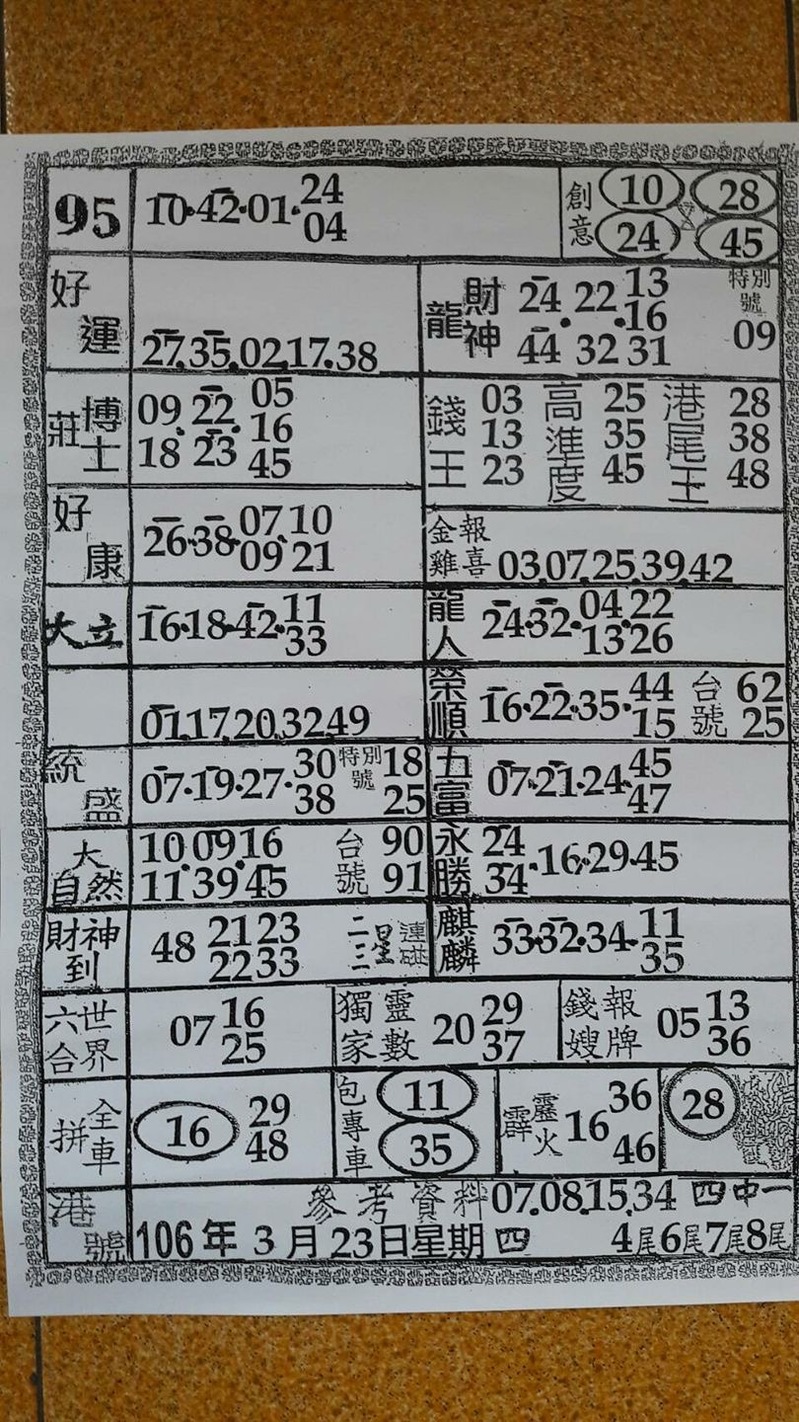 95 10·42·01·24 04 創意 10 28 24 45
好運 27.35.02.17.38
財神龍 24 22 13 16 44 32 31 特別號 09
莊博士 09 22 05 16 18 23 45
錢王 03 13 23 高進度 25 35 45 港尾王 28 38 48
好康 26·38·07.10 09 21
金雞報喜 03.07.25.39.42
大立 16·18·42·11 33
龍人 24·32·04.22 13 26
01.17.20.32.49
榮順 16·22·35·44 15 台號 62 25
統盛 07·19·27·30 38 特別號 18 25
五富 07·21·24·45 47
大自然 10 09 16 11 39 45 台號 90 91
永勝 24 34·16·29·45
財神到 48 21 23 22 33 二三星連碰
麒麟 33·32·34·11 35
六合世界 07 16 25
獨家靈數 20 29 37
錢嫂報牌 05 13 36
全車拼 16 29 48
包專車 11 35
霹靂火 16 36 46
28
港號 參考資料 07.08.15.34 四中一
106年3月23日星期四 4尾6尾7尾8尾